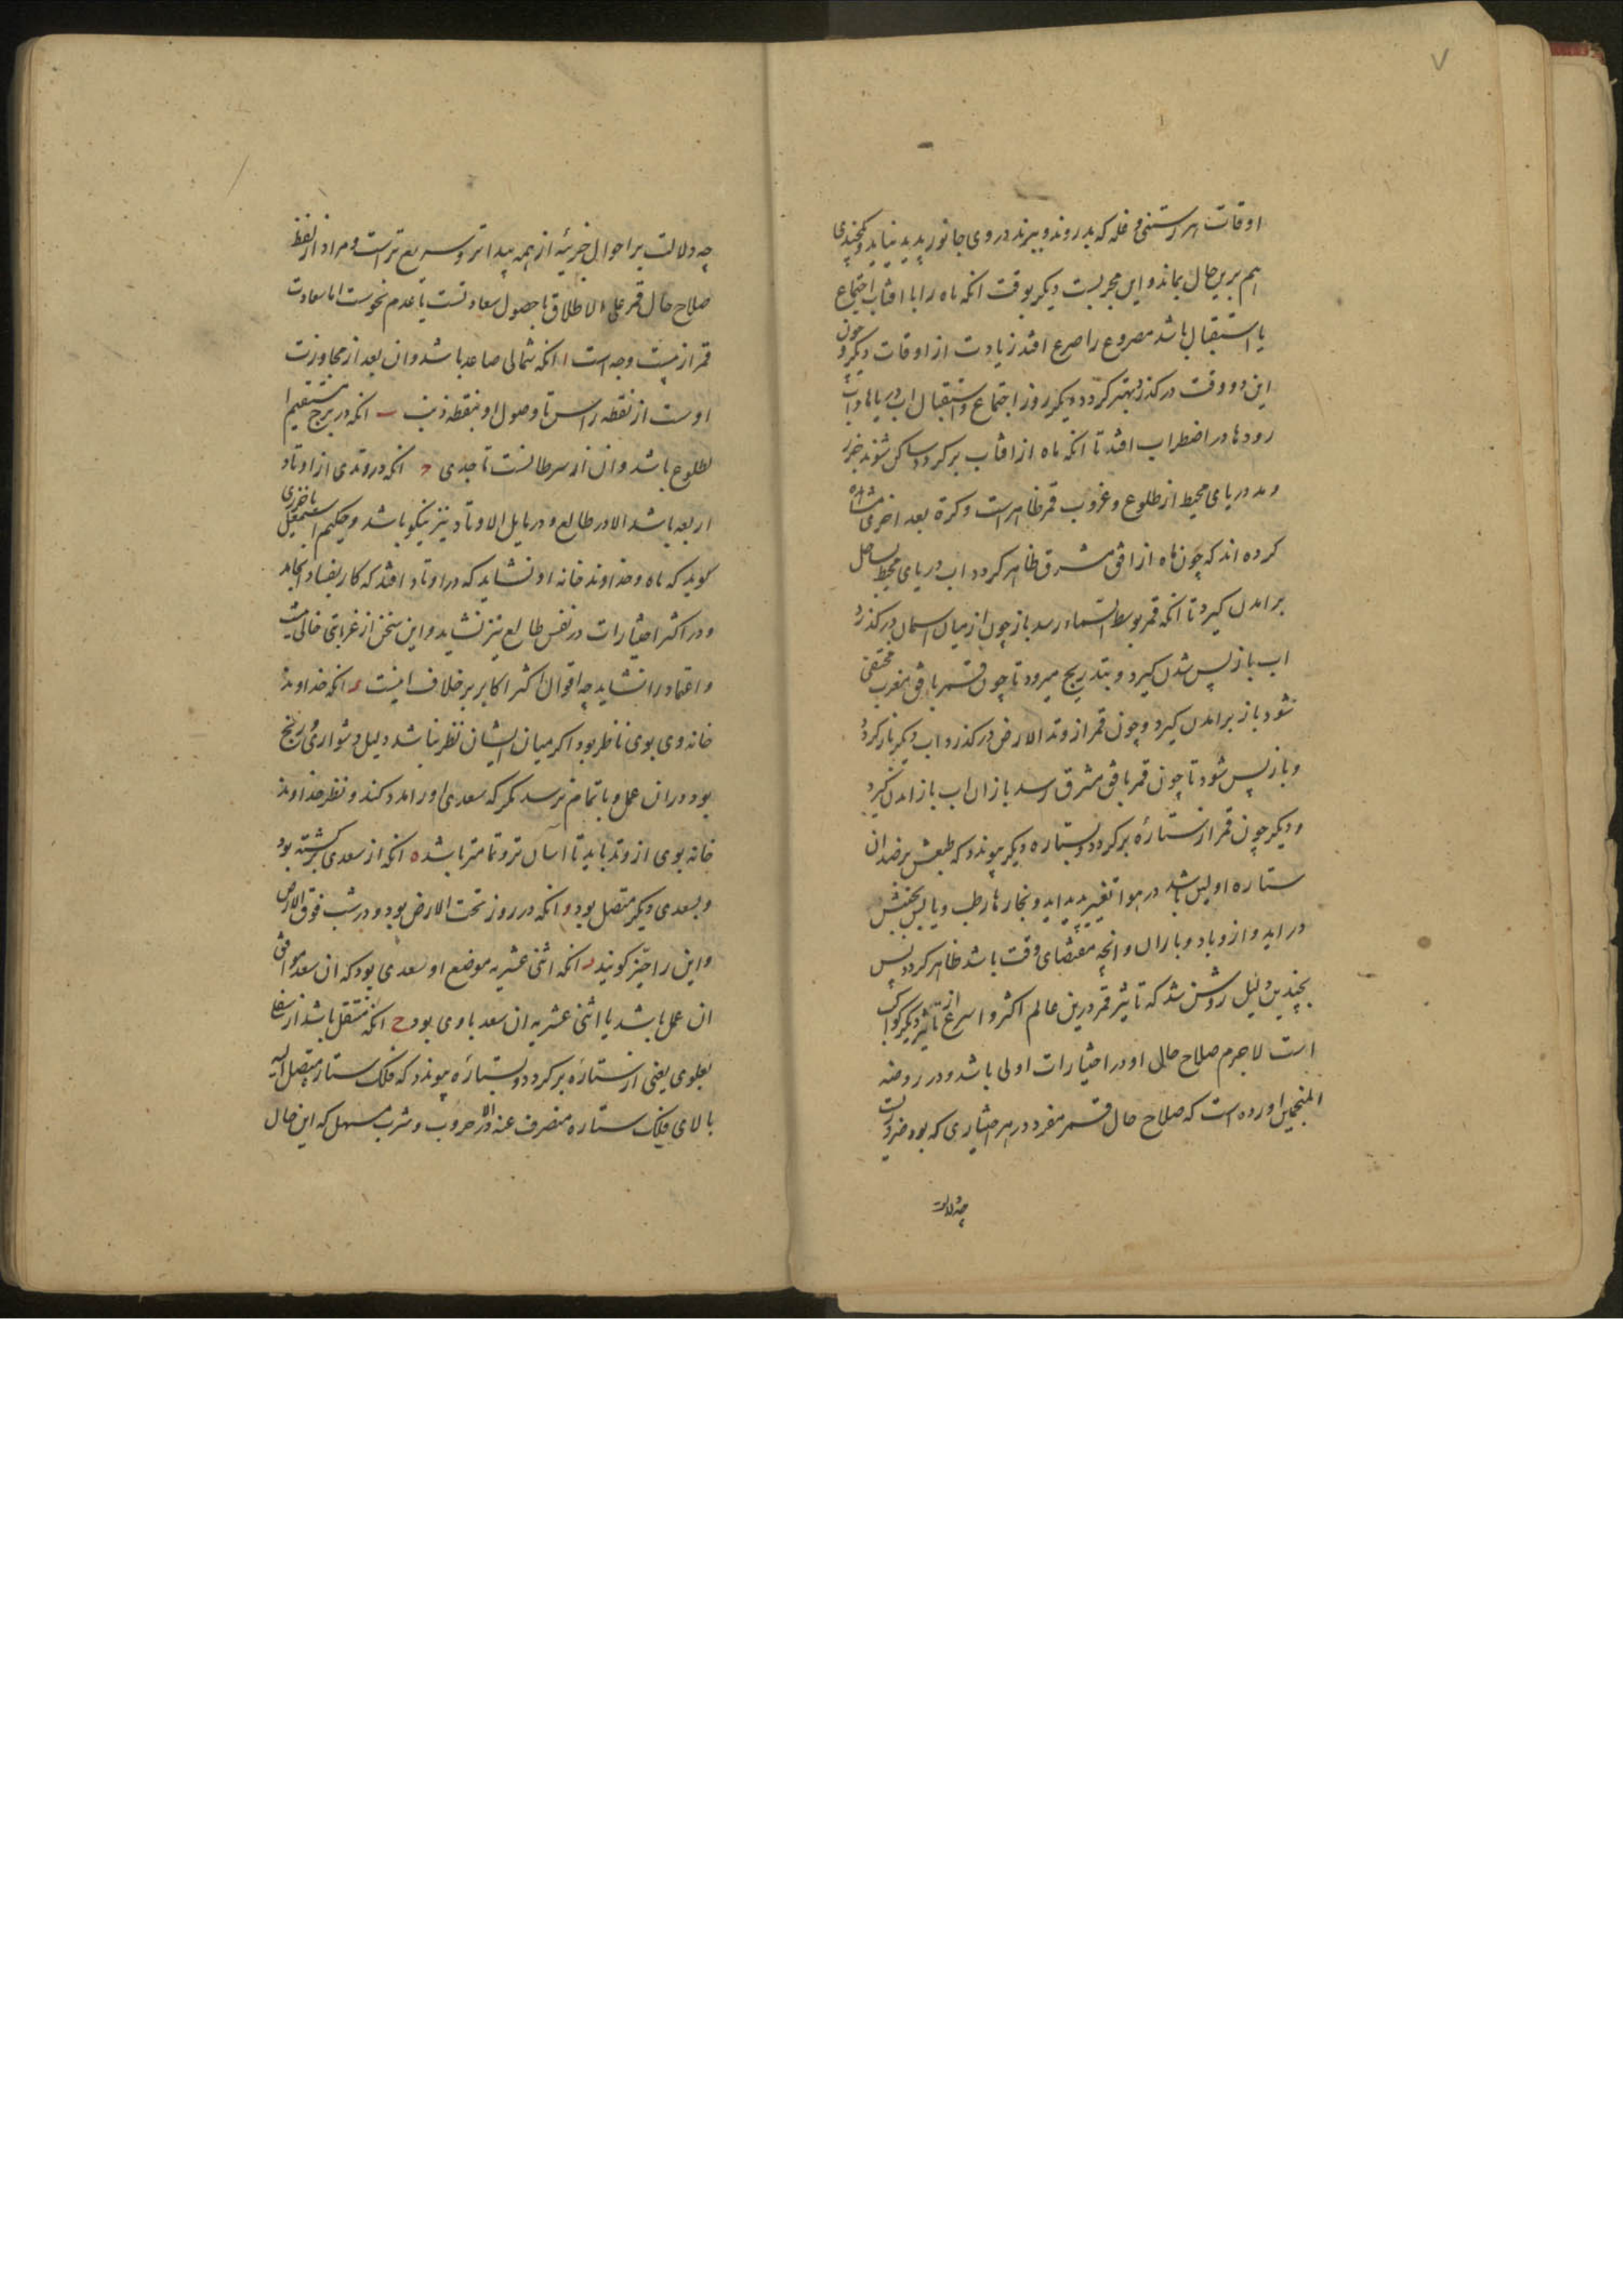 ۷
اوقات هر رستنی و غله که بدروند و ببرند در وی جانور پدید نیاید و کمخیدی
هم برین حال بماند و این مجربست دیکر بوقت انکه ماه را با افتاب اجتماع
یا استقبال باشد مصروع را صرع افتد زیادت از اوقات دیکر و چون
این دو وقت درکذرد بهتر کردد و دیکر روز اجتماع و استقبال اب دریاها و اب
رودها در اضطراب افتد تا انکه ماه از افتاب برکردد ساکن شوند جزر
و مد دریای محیط از طلوع و غروب قمر ظاهر است و کرة بعد اخری مشاهده
کرده اند که چون ماه از افق مشرق ظاهر کردد اب دریای محیط بساحل
برامدن کیرد تا انکه قمر بوسط السماء رسد باز چون از میان اسمان درکذرد
اب باز پس شدن کیرد و بتدریج میرود تا چون قمر بافق مغرب مختفی
شود باز برامدن کیرد و چون قمر از وتد الارض درکذرد اب دیکر باز کردد
و باز پس شود تا چون قمر بافق مشرق رسد باز ان اب باز امدن کیرد
و دیکر چون قمر از ستارهٔ برکردد و بستاره دیکر پیوندد که طبعش بر ضد ان
ستاره اولین باشد در هوا تغییر پدید اید و بخارها رطب و یابس بجنبش
در اید و از و باد و باران و انچه مقتضای وقت باشد ظاهر کردد پس
بچندین دلیل روشن شد که تاثیر قمر درین عالم اکثر و اسرع از تاثیر دیکر کواکب
است لاجرم صلاح حال او در اختیارات اولی باشد و در روضة
المنجمین اورده است که صلاح حال قمر مفرد در هر اختیاری که بود ضرورتست
چه دلالت
چه دلالت بر احوال جزئیه از همه پیداتر و سریع تر است و مراد از لفظ
صلاح حال قمر علی الاطلاق یا حصول سعادتست یا عدم نحوست اما سعادت
قمر از بیست وجه است ا انکه شمالی صاعد باشد و ان بعد از مجاوزت
اوست از نقطه راس تا وصول او بنقطه ذنب ب انکه در برج مستقیم
الطلوع باشد و ان از سرطانست تا جدی ج انکه در وتدی از اوتاد
اربعه باشد الا در طالع و در مایل الاوتاد نیز نیکو باشد و حکیم اسمعیل باخزری
کوید که ماه و خداوند خانه او نشاید که در اوتاد افتد که کار بفساد انجامد
و در اکثر اختیارات در نفس طالع نیز نشاید و این سخن از غرابتی خالی نیست
و اعتماد را نشاید چه اقوال اکثر اکابر بر خلاف اینست د انکه خداوند
خانه وی بوی ناظر بود اکر میان ایشان نظر نباشد دلیل دشواری و رنج
بود در ان عمل و باتمام نرسد مکر که سعدی او را مدد کند و نظر خداوند
خانه بوی از وتد باید تا اسان تر و تمامتر باشد ه انکه از سعدی برکشته بود
و بسعدی دیکر متصل بود و انکه در روز تحت الارض بود و در شب فوق الارض
و این را حیّز کویند ز انکه اثنی عشریه موضع او سعدی بود که ان سعد موافق
ان عمل باشد یا اثنی عشریه ان سعد با وی بود ح انکه منتقل باشد از سفلی
بعلوی یعنی از ستارهٔ برکردد و بستارهٔ پیوندد که فلک ستاره متصل الیه
بالای فلک ستاره منصرف عنه الا در حروب و شرب مسهل که این حال